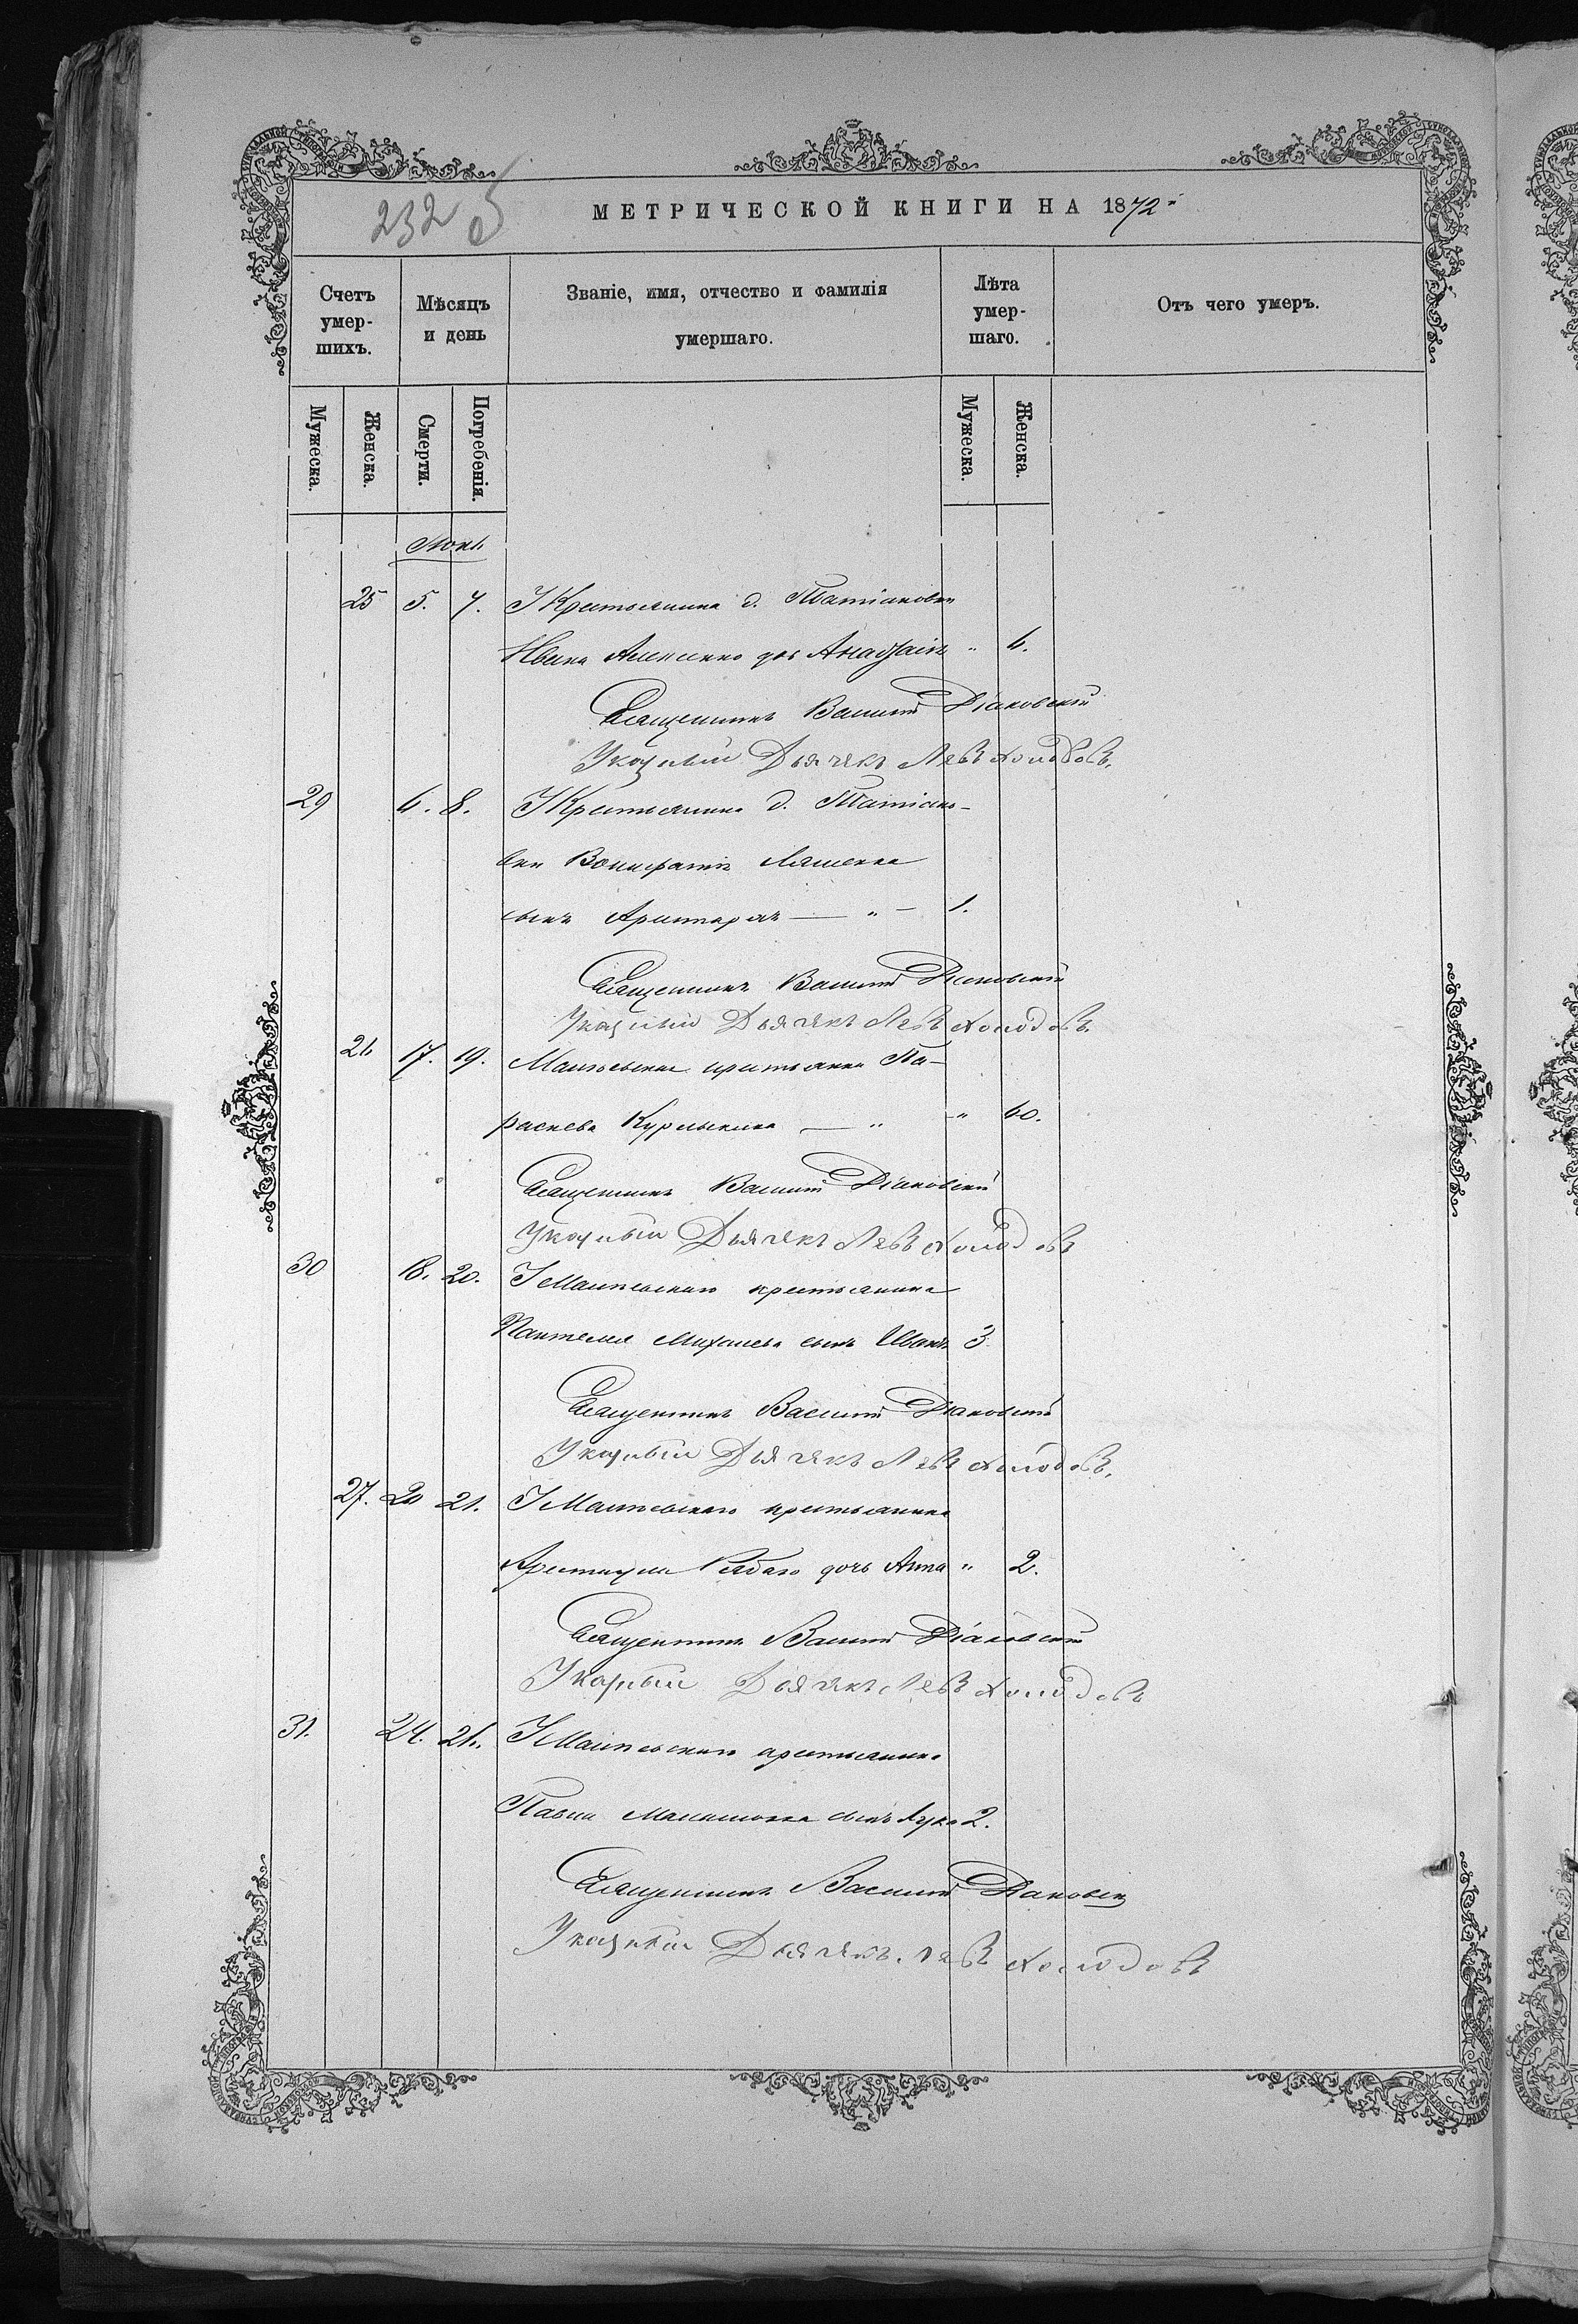 232 об
МЕТРИЧЕСКОЙ КНИГИ НА 1872
Счетъ умершихъ.
Мѣсяцъ и день
Званіе, имя, отчество и фамилія умершаго.
Лѣта умершаго.
Отъ чего умеръ.
Мужеска.
Женска.
Смерти.
Погребенія.
Мужеска.
Женска.
25 5. 7. У Крестьянина д. Татіановки
дочь " 6.
Священникъ Василій Діаковскій
Указный Дьячекъ Левъ Холодовъ.
29 6. 8. У Крестьянина д. Татіано-
вки Вонифатія Ляшенка
сынъ Аристархъ — " — 1.
Священникъ Василій Діаковскій
Указный Дьячекъ Левъ Холодовъ
26 17. 19. крестьянка Па-
раскева — " " 60.
Священникъ Василій Діаковскій
Указный Дьячекъ Левъ Холодовъ
30 18. 20. У крестьянина
Пантелея Михаилева сынъ Иванъ 3
Священникъ Василій Діаковскій
Указный Дьячекъ Левъ Холодовъ.
27. 20 21. У крестьянина
дочь Анна " 2.
Священникъ Василій Діаковскій
Указный Дьячекъ Левъ Холодовъ
31. 24. 26. У крестьянина
Павла сынъ Лука 2.
Священникъ Василій Діаковскій
Указный Дьячекъ Левъ Холодовъ